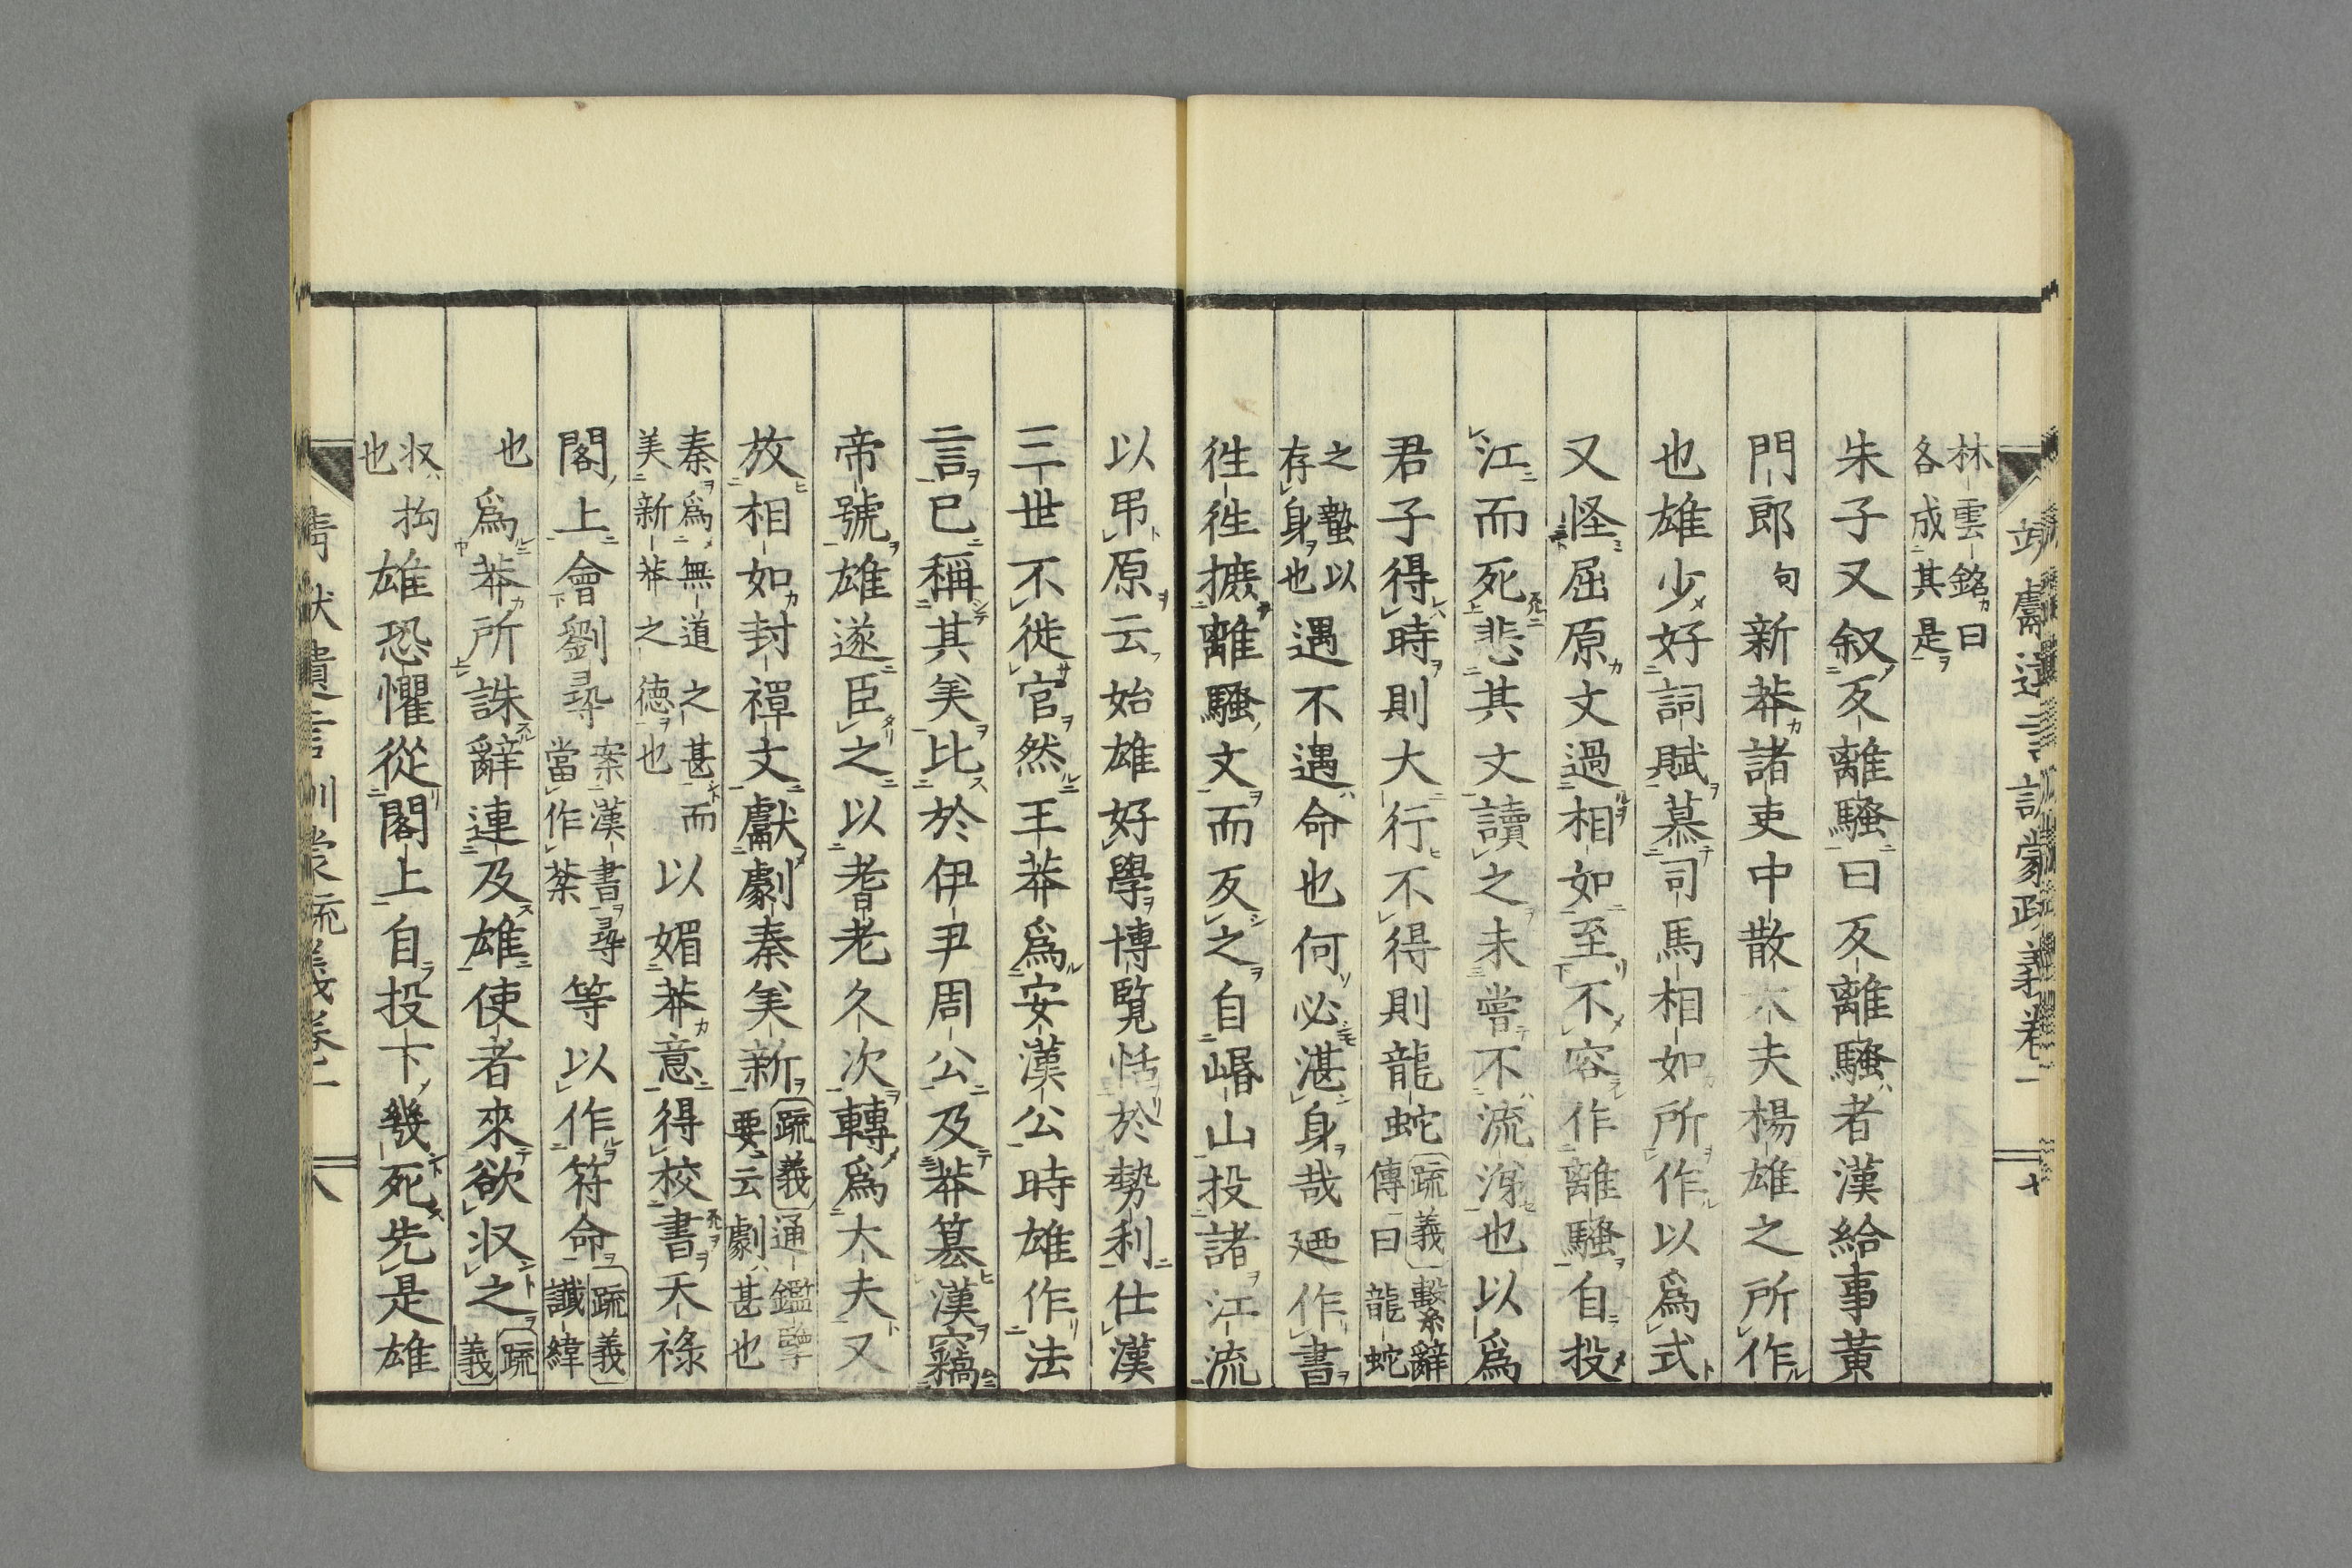 林雲銘曰
各成其是
朱子又叙反離騷曰反離騷者漢給事黃
門郎句新莽諸吏中散大夫楊雄之所作
也雄少好詞賦慕司馬相如所作以爲式
又怪屈原文過相如至不容作離騷自投
江而死悲其文讀之未嘗不流涕也以爲
君子得時則大行不得則龍蛇疏義繫辭傳曰龍蛇
之蟄以存身也遇不遇命也何必湛身哉廼作書
徃徃摭離騷文而反之自㟭山投諸江流
以吊原云始雄好學博覧恬於勢利仕漢
三世不徙官然王莽爲安漢公時雄作法
言已稱其羙比於伊尹周公及莽簒漢竊
帝號雄遂臣之以耆老久次轉爲大夫又
放相如封禪文獻劇秦羙新疏義通鑑擥要云劇甚也
秦爲無道之甚而美新莽之徳也以媚莽意得校書天祿
閣上會劉尋案漢書尋當作棻等以作符命疏義讖緯
也爲莽所誅辭連及雄使者來欲収之疏義
収拘也雄恐懼從閣上自投下幾死先是雄